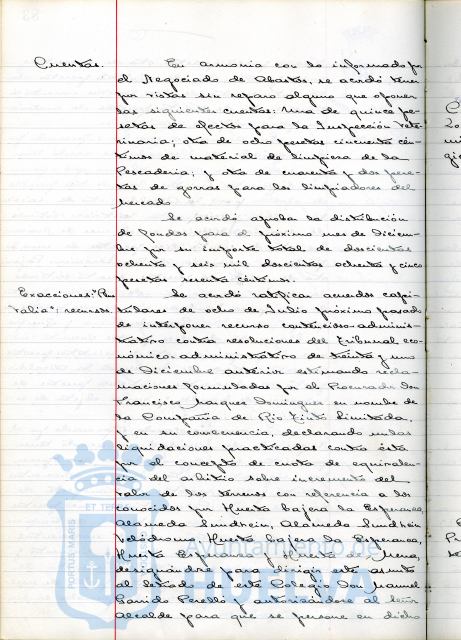 Cuentas. En armonia con lo informado por
el Negociado de Abastos, se acordó tener
por vistas sin reparo alguno que oponer
las siguientes cuentas: Una de quince pe-
setas de efectos para la Inspección Vete-
rinaria; otra de ocho pesetas cincuenta cén-
timos de material de limpieza de la
Pescaderia; y otra de cuarenta y dos pese-
tas de gorras para los limpiadores del
Mercado
Se acordó aprobar la distribución
de fondos para el próximo mes de Diciem-
bre por su importe total de doscientas
ochenta y seis mil doscientas ochenta y cinco
pesetas sesenta céntimos.
Exacciones: "Plus Se acordó ratificar acuerdos capi-
valia": recursos. tulares de ocho de Julio próximo pasado
de interponer recurso contencioso-adminis-
trativo contra resoluciones del Tribunal eco-
nómico-administrativo de treinta y uno
de Diciembre anterior estimando recla-
maciones formuladas por el Procurador Don
Francisco Vazquez Dominguez en nombre de
la Compañia de Rio Tinto Limitada,
y en su consecuencia, declarando nulas
liquidaciones practicadas contra ésta
por el concepto de cuota de equivalen-
cia del arbitrio sobre incremento del
valor de los terrenos con referencia a los
conocidos por Huerta bajera la Esperanza,
Alameda Sundheim, Alameda Sundheim
Velódromo, Huerta bajera la Esperanza,
Huerta Esperanza y Huerta
designándose para dirigir este asunto
al letrado de este Colegio Don Manuel
Garrido Perelló y autorizándose al Señor
Alcalde para que se persone en dicho
PORTUS MARIS
ET TER
Ayuntamiento de
HUELVA